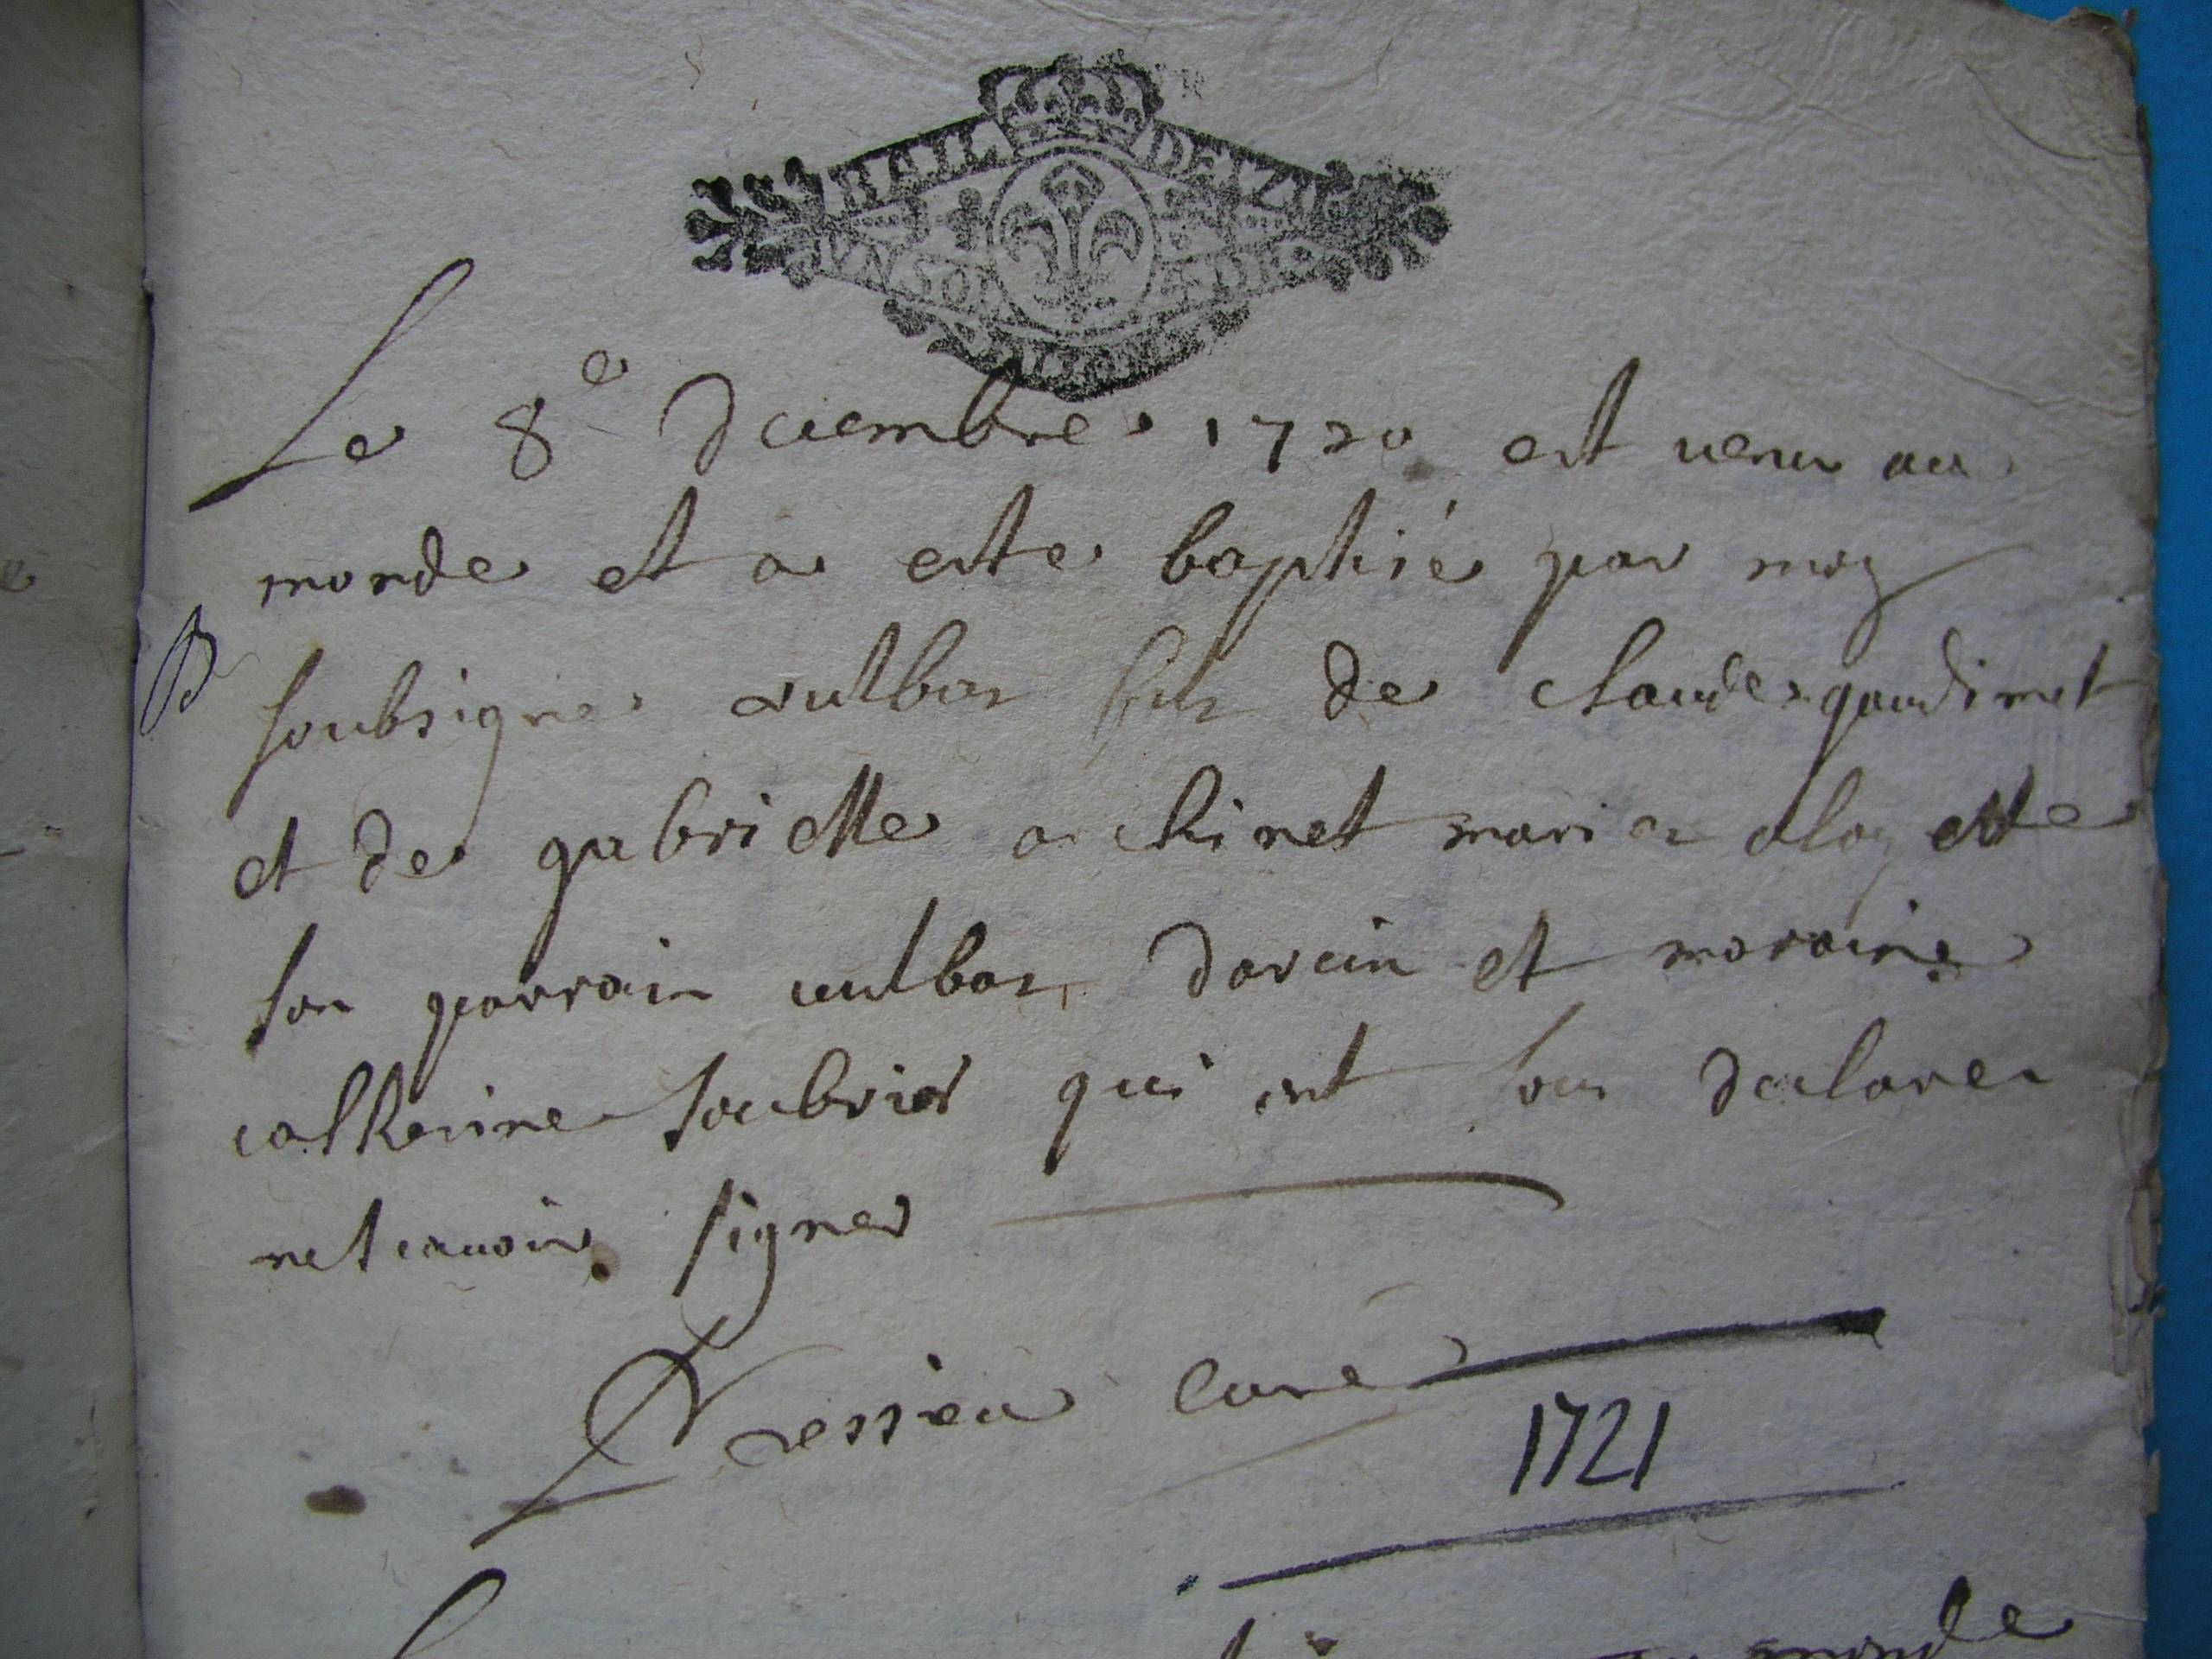 Le 8e decembre 1720 est venu au
monde et a este baptisé par moy
B
soubsigne vulbas fils de claude gaudimet
et de gabrielle achinet mariez a loy este
son parrain vulbas darcin et maraine
catherine soubrier qui ont tous declarez
ne scavoir signer
Dressieu Curé
1721
monde